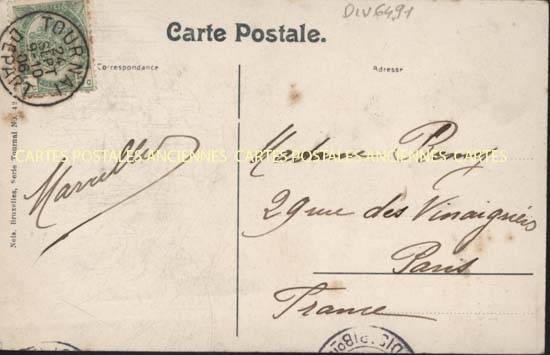 DIV6491
Carte Postale.
Correspondance
Adresse
TOURNAI
24
SEPT
9-10
06
DEPART
Nels, Bruxelles, Serie Tournai No. 42
CARTES POSTALES ANCIENNES CARTES POSTALES ANCIENNES
Marcelle
Madame
29 rue des Vinaigriers
Paris
France
DISTRIBON